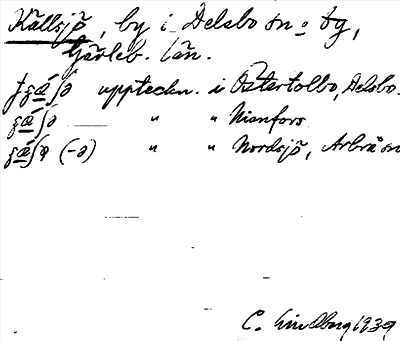 Källsjö, by i Delsbo sn o tg,
Gävleb. län.
uppteckn. i Östertolbo, Delsbo.
— " " Nianfors
(-ə) " " Nordsjö, Arbrå sn
C. Lindberg 1939